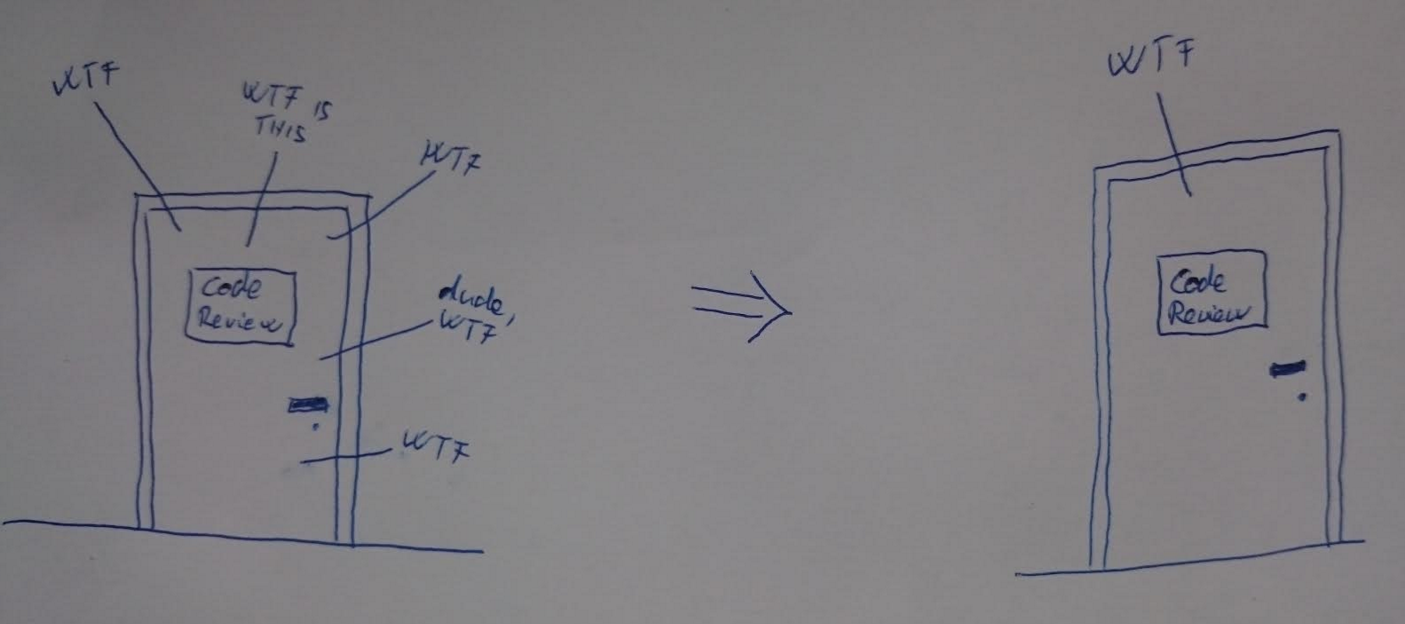 WTF
WTF is
THIS
WTF
Code
Review
dude,
WTF
WTF
WTF
Code
Review